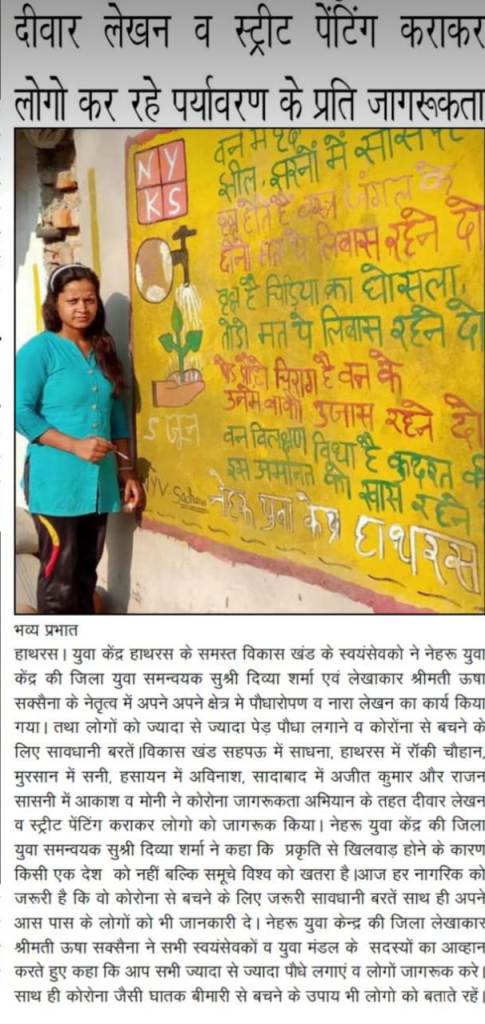 दीवार लेखन व स्ट्रीट पेंटिंग कराकर
लोगो कर रहे पर्यावरण के प्रति जागरूकता
NY
KS
शील, झरनों में
दोनों मत ये लिबास रहने दो
वृक्ष है चिड़िया का घोसला,
तोडो मत ये लिबास रहने दो
चिराग है वन के
उजास रहने दो
5 जून
वन विलक्षण विधा है कुदरत की
इस अमानत को खास रहने
Sadhana
नेहरू युवा केन्द्र हाथरस
भव्य प्रभात
हाथरस। युवा केंद्र हाथरस के समस्त विकास खंड के स्वयंसेवको ने नेहरू युवा
केंद्र की जिला युवा समन्वयक सुश्री दिव्या शर्मा एवं लेखाकार श्रीमती ऊषा
सक्सैना के नेतृत्व में अपने अपने क्षेत्र मे पौधारोपण व नारा लेखन का कार्य किया
गया। तथा लोगों को ज्यादा से ज्यादा पेड़ पौधा लगाने व कोरोंना से बचने के
लिए सावधानी बरतें।विकास खंड सहपऊ में साधना, हाथरस में रॉकी चौहान,
मुरसान में सनी, हसायन में अविनाश, सादाबाद में अजीत कुमार और राजन
सासनी में आकाश व मोनी ने कोरोना जागरूकता अभियान के तहत दीवार लेखन
व स्ट्रीट पेंटिंग कराकर लोगो को जागरूक किया। नेहरू युवा केंद्र की जिला
युवा समन्वयक सुश्री दिव्या शर्मा ने कहा कि प्रकृति से खिलवाड़ होने के कारण
किसी एक देश को नहीं बल्कि समूचे विश्व को खतरा है।आज हर नागरिक को
जरूरी है कि वो कोरोना से बचने के लिए जरूरी सावधानी बरतें साथ ही अपने
आस पास के लोगों को भी जानकारी दे। नेहरू युवा केन्द्र की जिला लेखाकार
श्रीमती ऊषा सक्सैना ने सभी स्वयंसेवकों व युवा मंडल के सदस्यों का आव्हान
करते हुए कहा कि आप सभी ज्यादा से ज्यादा पौधे लगाएं व लोगों जागरूक करे।
साथ ही कोरोना जैसी घातक बीमारी से बचने के उपाय भी लोगो को बताते रहें।